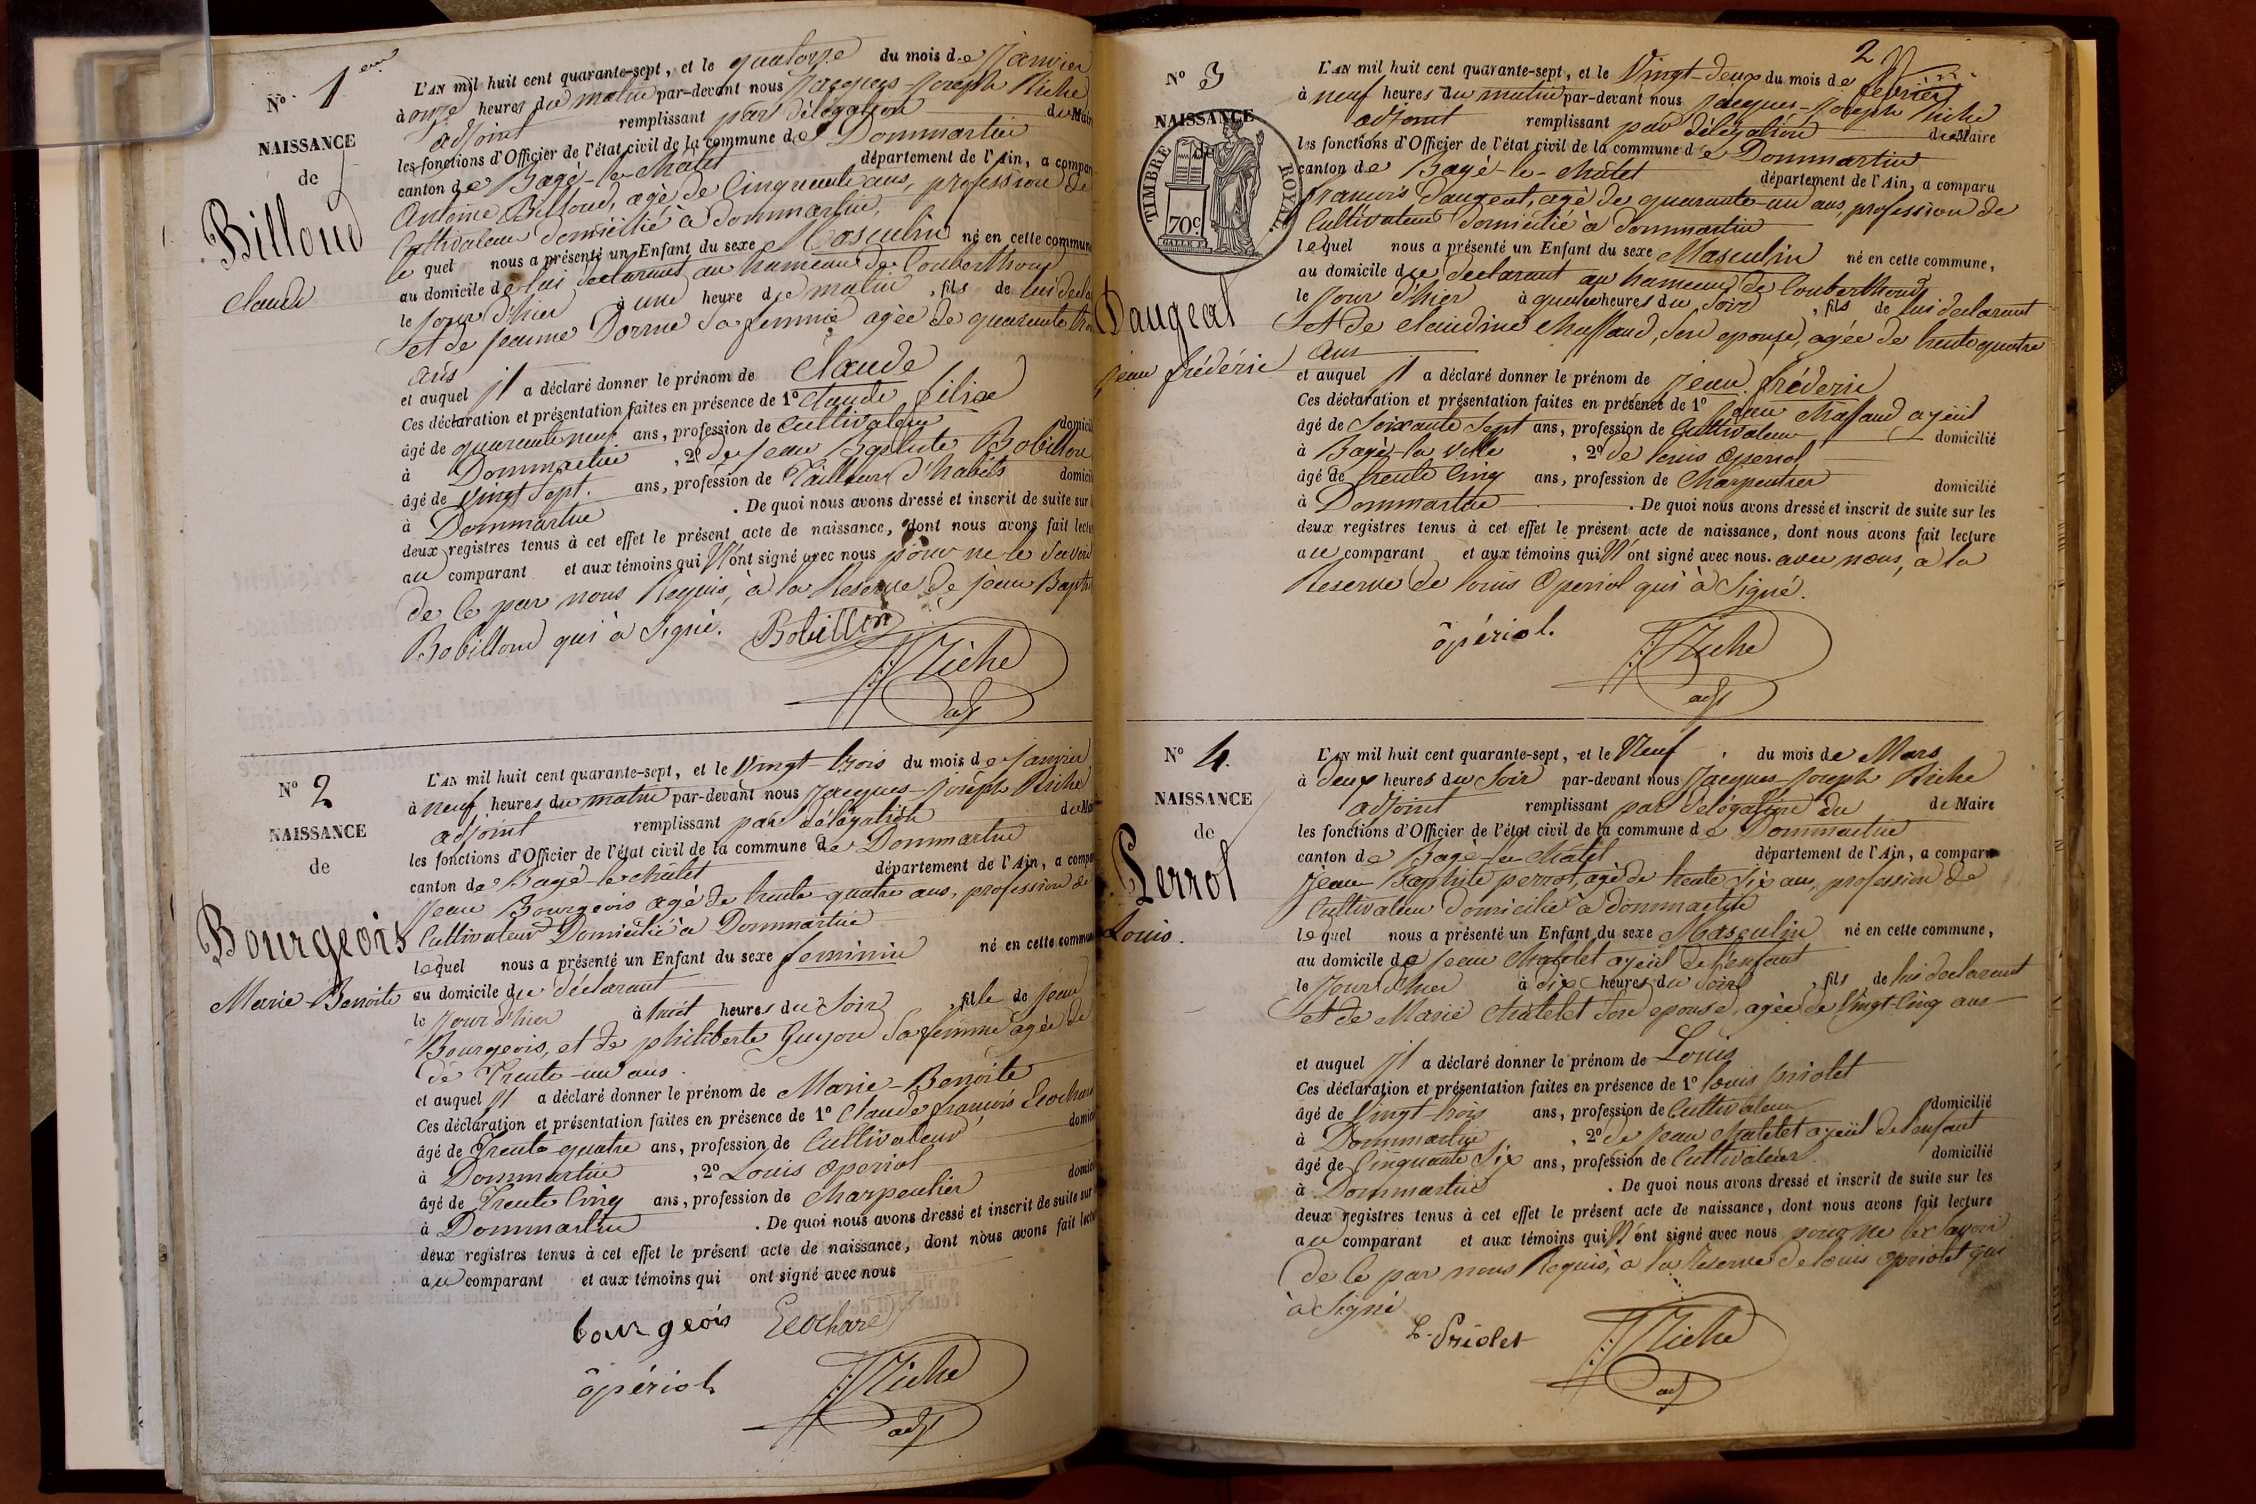 N° 1er
NAISSANCE
de
Billoud
Claude
L'AN mil huit cent quarante-sept, et le quatorze du mois de Janvier
à onze heures du matin par-devant nous Jacques-Joseph Riche
adjoint remplissant par délégation du Maire
les fonctions d'Officier de l'état civil de la commune de Dommartin
canton de Bagé-le-chatel département de l'Ain, a compar
Antoine Billoud, agé de Cinquante ans, profession de
Cultivateur domicilié à Dommartin,
le quel nous a présenté un Enfant du sexe Masculin né en cette commune
au domicile de lui déclarant au hameau de Couberthoud
le jour d'hier à une heure du matin, fils de lui décla
et de Jeanne Dorme Sa femme agée de quarante tro
ans
et auquel il a déclaré donner le prénom de Claude
Ces déclaration et présentation faites en présence de 1° Claude felix
âgé de quarante neuf ans, profession de Cultivateur domicil
à Dommartin, 2° de Jean Baptiste Bobillon
âgé de vingt Sept. ans, profession de Tailleur d'habits domicil
à Dommartin. De quoi nous avons dressé et inscrit de suite sur l
deux registres tenus à cet effet le présent acte de naissance, dont nous avons fait lectu
au comparant et aux témoins qui N'ont signé avec nous pour ne le Savoir
de ce par nous Requis, à la Reserve de jean Bapti
Bobilloud qui à Signé. Bobillon
JJRiche
adj
N° 2
NAISSANCE
de
Bourgeois
Marie-Benoite
L'AN mil huit cent quarante-sept, et le Vingt trois du mois de Janvier
à neuf heures du matin par-devant nous Jacques-Joseph Riche
adjoint remplissant par délégation du Mai
les fonctions d'Officier de l'état civil de la commune de Dommartin
canton de Bagé-le-châtel département de l'Ain, a compa
Jean Bourgeois agé de trente-quatre ans, profession de
Cultivateur Domicilié à Dommartin
lequel nous a présenté un Enfant du sexe feminin né en cette commun
au domicile du déclarant
le jour d'hier à huit heures du Soir, fille de jean
Bourgeois, et de philiberte Guyon Sa femme agée de
de Trente-un ans.
et auquel il a déclaré donner le prénom de Marie-Benoite
Ces déclaration et présentation faites en présence de 1° Claude françois
âgé de Trente-quatre ans, profession de Cultivateur domici
à Dommartin, 2° Louis Operiol
âgé de Trente Cinq ans, profession de Charpentier domici
à Dommartin. De quoi nous avons dressé et inscrit de suite sur
deux registres tenus à cet effet le présent acte de naissance, dont nous avons fait lectu
au comparant et aux témoins qui ont signé avec nous
bourgeois
ôpériol
JJRiche
adj
2
N° 3
NAISSANCE
de
TIMBRE ROYAL
70c
Daugeat
jean fréderic
L'AN mil huit cent quarante-sept, et le Vingt-deux du mois de fevrier
à neuf heures du matin par-devant nous Jacques-Joseph Riche
adjoint remplissant par délégation du Maire
les fonctions d'Officier de l'état civil de la commune de Dommartin
canton de Bagé-le-châtel département de l'Ain, a comparu
françois Daugeat, agé de quarante-un ans, profession de
Cultivateur domicilié à Dommartin
lequel nous a présenté un Enfant du sexe Masculin né en cette commune,
au domicile de declarant au hameau de Couberthoud
le jour d'hier à quatre heures du Soir, fils de lui declarant
et de Claudine Chaffaud, Son epouse, agée de trente quatre
ans
et auquel il a déclaré donner le prénom de jean fréderic
Ces déclaration et présentation faites en présence de 1° jean Chaffaud ayeüil
âgé de Soixante Sept ans, profession de Cultivateur domicilié
à Bagé-la ville, 2° de louis Operiol
âgé de trente Cinq ans, profession de Charpentier domicilié
à Dommartin. De quoi nous avons dressé et inscrit de suite sur les
deux registres tenus à cet effet le présent acte de naissance, dont nous avons fait lecture
au comparant et aux témoins qui N'ont signé avec nous. avec nous, à la
Reserve de louis Operiol qui à Signé.
ôpériol.
JJRiche
adj
N° 4.
NAISSANCE
de
Perrot
Louis.
L'AN mil huit cent quarante-sept, et le Neuf du mois de Mars
à deux heures du Soir par-devant nous Jacques-Joseph Riche
adjoint remplissant par délégation du de Maire
les fonctions d'Officier de l'état civil de la commune de Dommartin
canton de Bagé-le-Chatel département de l'Ain, a comparu
Jean-Baptiste perrot, agé de trente Six ans, profession de
Cultivateur domicilié à Dommartin
lequel nous a présenté un Enfant du sexe Masculin né en cette commune,
au domicile de Jean Chatelet ayeüil de l'enfant
le jour d'hier à dix heures du Soir, fils de lui declarant
et de Marie Chatelet Son epouse, agée de Vingt-Cinq ans
et auquel il a déclaré donner le prénom de Louis
Ces déclaration et présentation faites en présence de 1° louis priolet
âgé de Vingt-trois ans, profession de Cultivateur domicilié
à Dommartin, 2° de Jean Chatelet ayeüil de l'enfant
âgé de Cinquante Six ans, profession de Cultivateur domicilié
à Dommartin. De quoi nous avons dressé et inscrit de suite sur les
deux registres tenus à cet effet le présent acte de naissance, dont nous avons fait lecture
au comparant et aux témoins qui N'ont signé avec nous pour ne le Savoir
de ce par nous Requis, à la Reserve de louis opriolet qui
à Signé
L. Priolet
JJRiche
adj